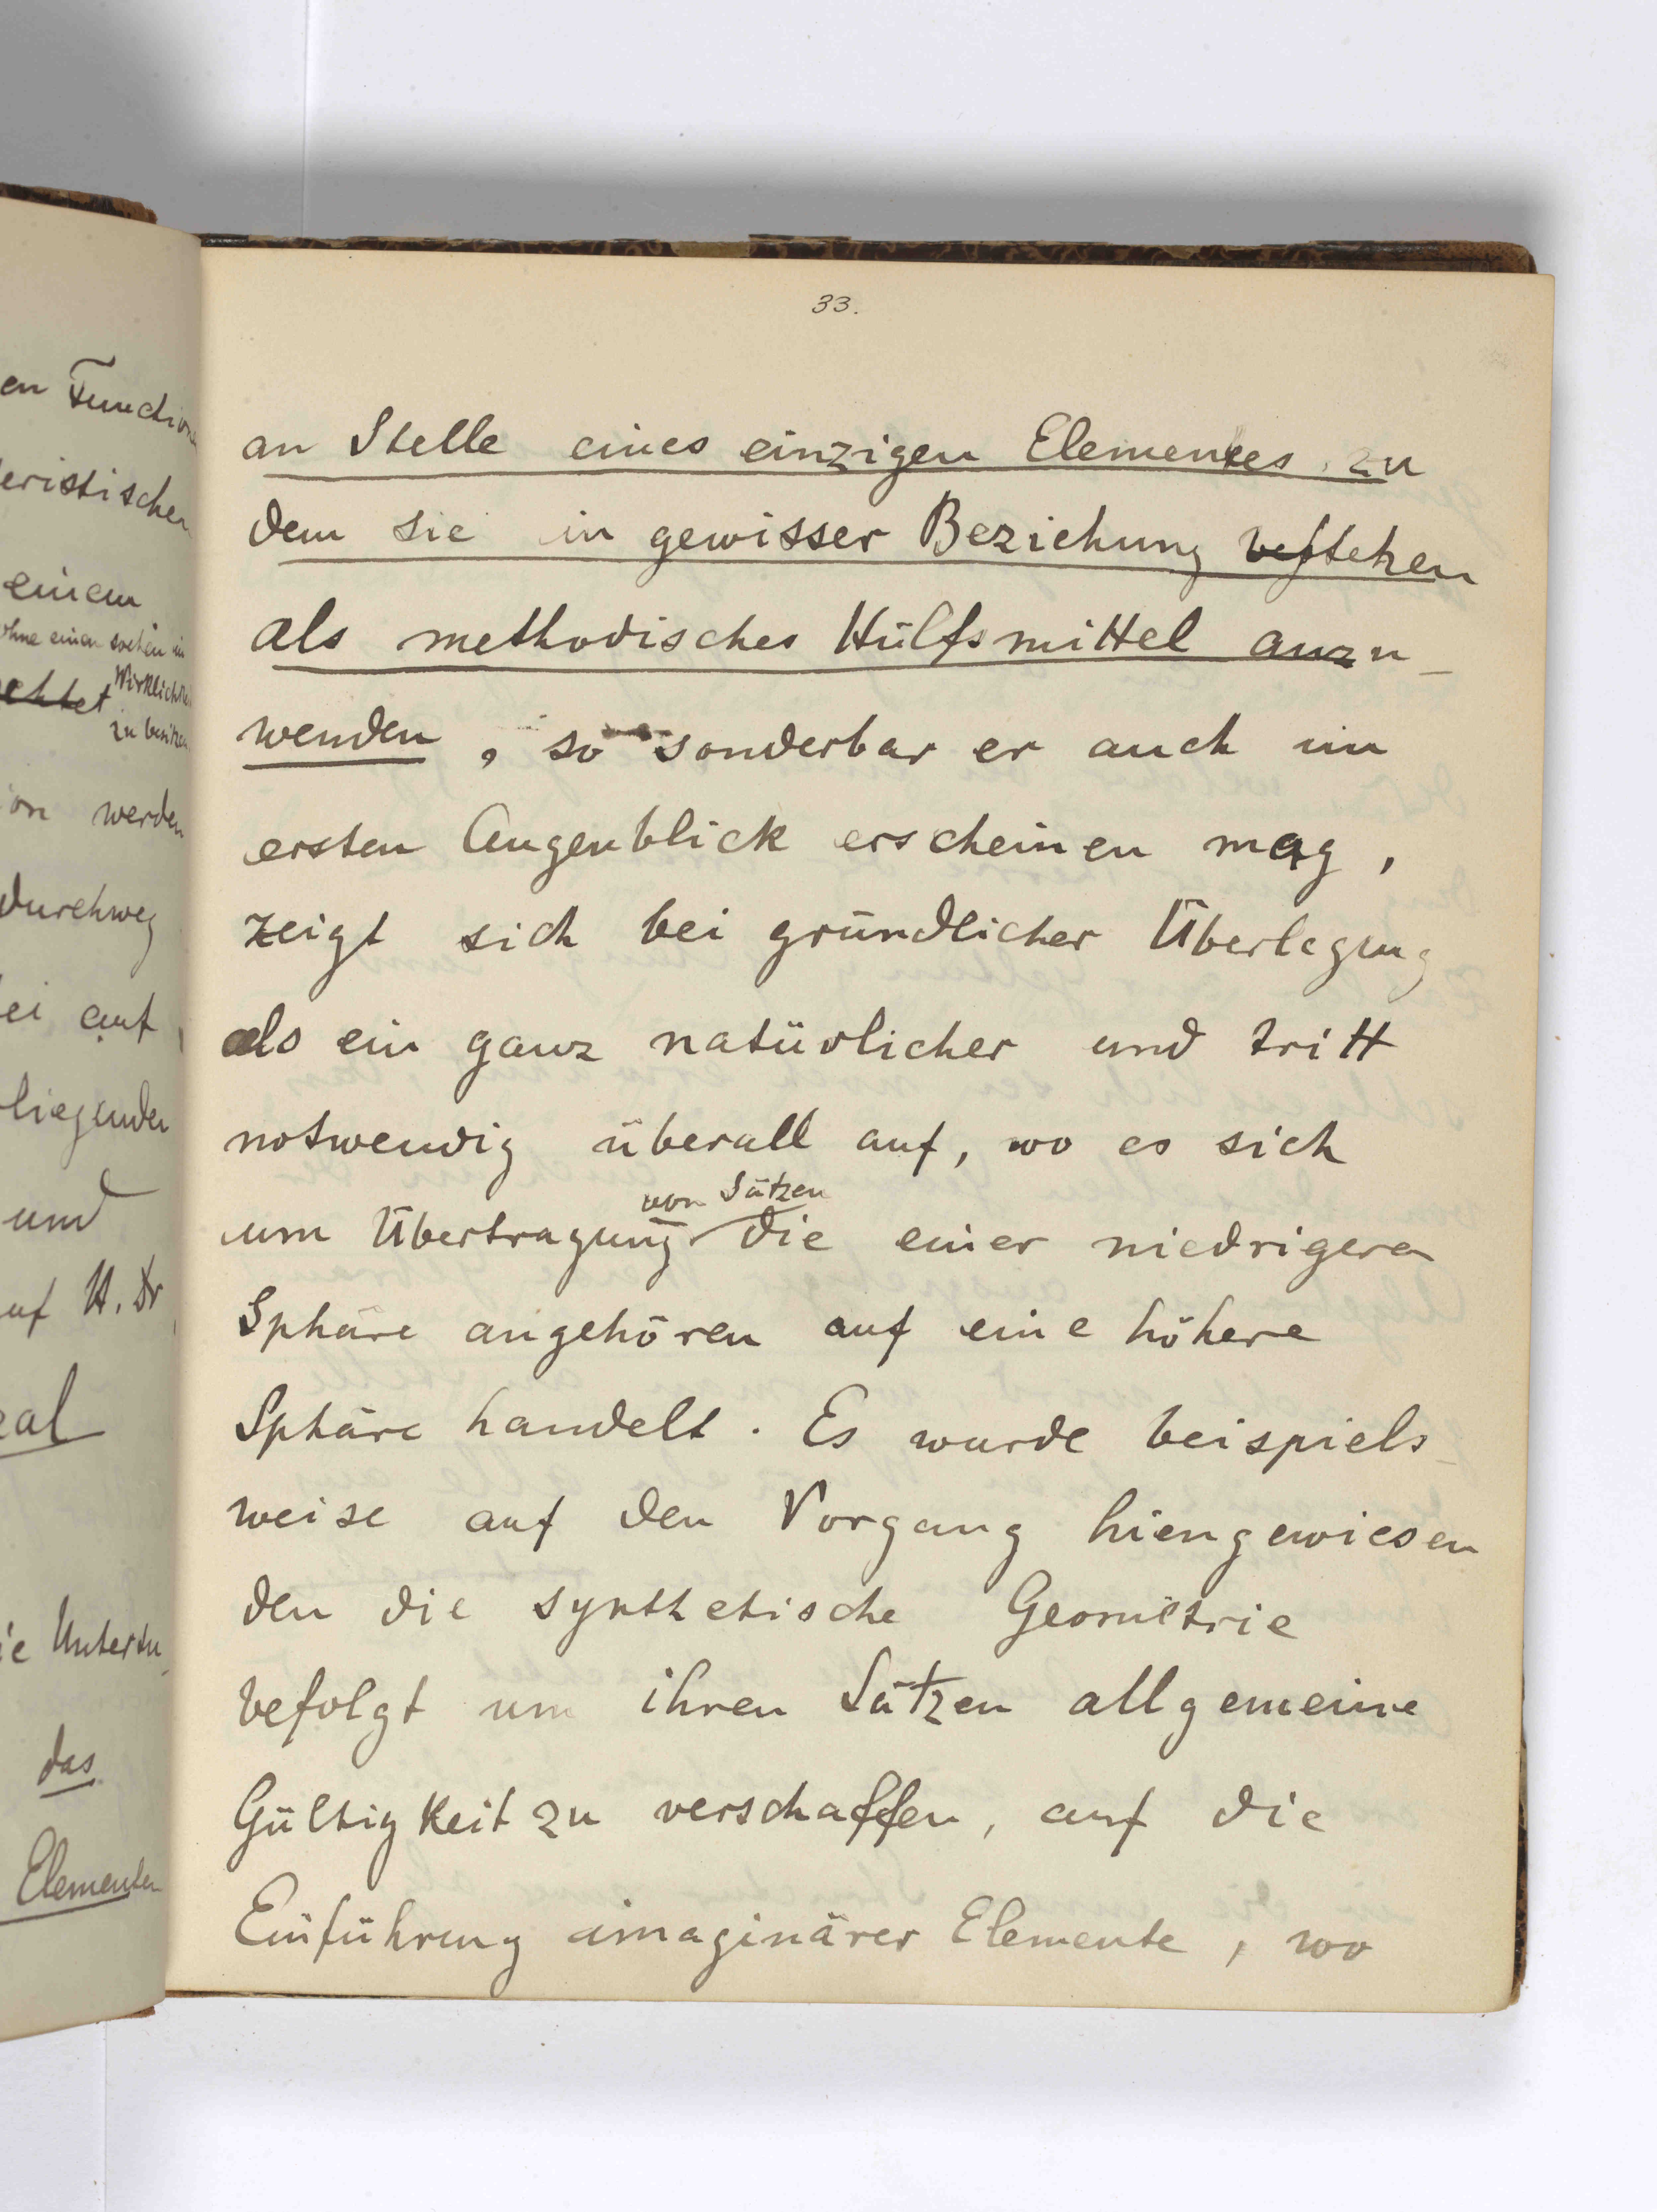 en Function
eristischen
einem
ohne einen solchen in
Wirklichkei
chtet
zu besitzen
on werden
durchweg
ei auf
liegenden
und
uf H. Dr
eal
ie Untersu
das
Elementen
33.
an Stelle eines einzigen Elementes, zu
dem sie in gewisser Beziehung bestehen
als methodisches Hülfsmittel anzu-
wenden, so sonderbar er auch im
ersten Augenblick erscheinen mag,
zeigt sich bei gründlicher Überlegung
als ein ganz natürlicher und tritt
notwendig überall auf, wo es sich
von Sätzen
um Übertragung die einer niedrigeren
Sphäre angehören auf eine höhere
Sphäre handelt. Es wurde beispiels-
weise auf den Vorgang hiengewiesen
den die synthetische Geometrie
befolgt um ihren Sätzen allgemeine
Gültigkeit zu verschaffen, auf die
Einführung imaginärer Elemente, wo